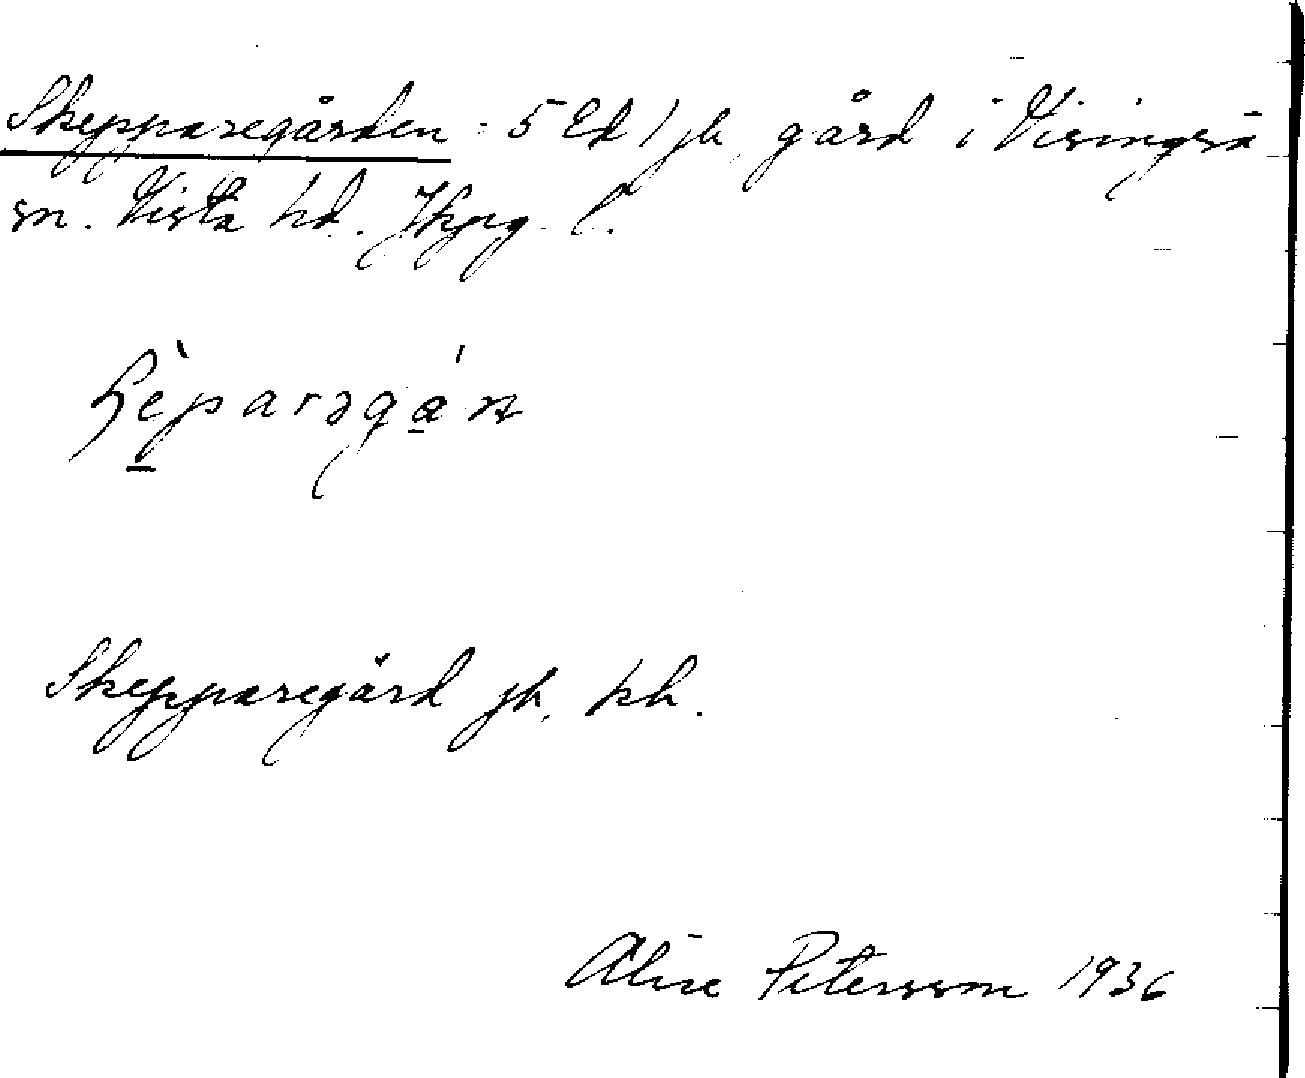 Skepparegården : 5 Ed 1 jb, gård i Visingsö
sn. Vista hd. Jkpg. l.
Skepparegård jb, kb.
Alice Petersson 1936